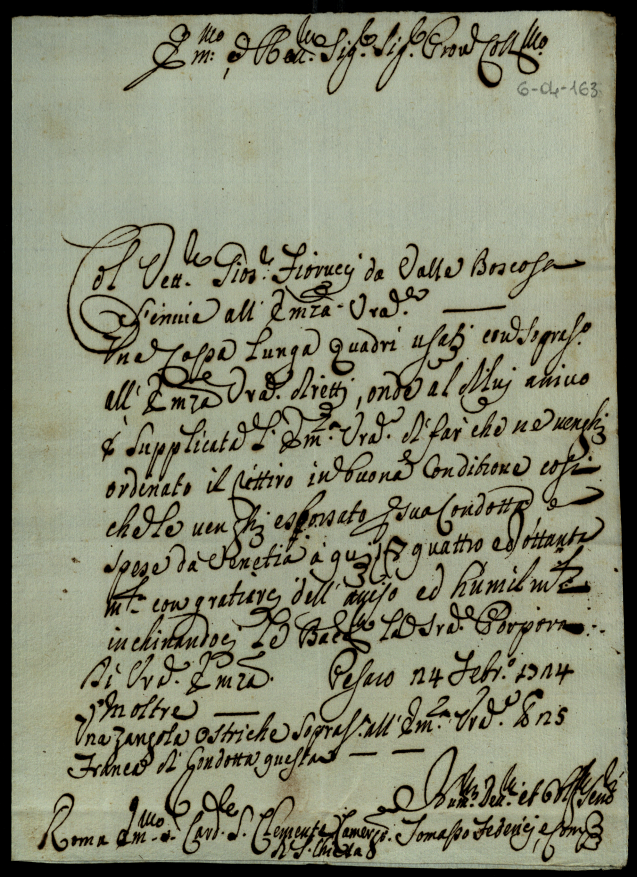 Em:mo e Rev:mo Sig:r Sig:r Pron Coll:mo
6-04-163
Col Vett:le Gios:e Fiorucci da Valle Boscosa
S'inuia all' Em:za Vra
Una Cassa Lunga Quadri usati con sopras:to
all' Em:za Vra diretti, onde al di lui ariuo
è supplicata l' Em:a Vra di far che ne venghi
ordenato il ritiro in buona Conditione così
che le venghi esborsato p sua Condotta e
spese da Venetia a qui quattro ed ottanta
m:ta con gratiarci dell' auiso ed humilm:te
inchinandoci Le Bac la Sra Porpora
Di Vra Em:za Pesaro 24 Febr:o 1724
P inoltre
Una Zangola Ostriche sopras: all' Em: Vra 25
Franca di Condotta questa
Hum: Deu: et Obl: Seru
Roma Em:mo Card:le S. Clemente Camerlgo Tomasso Federici, e Comp
di S. Chiesa